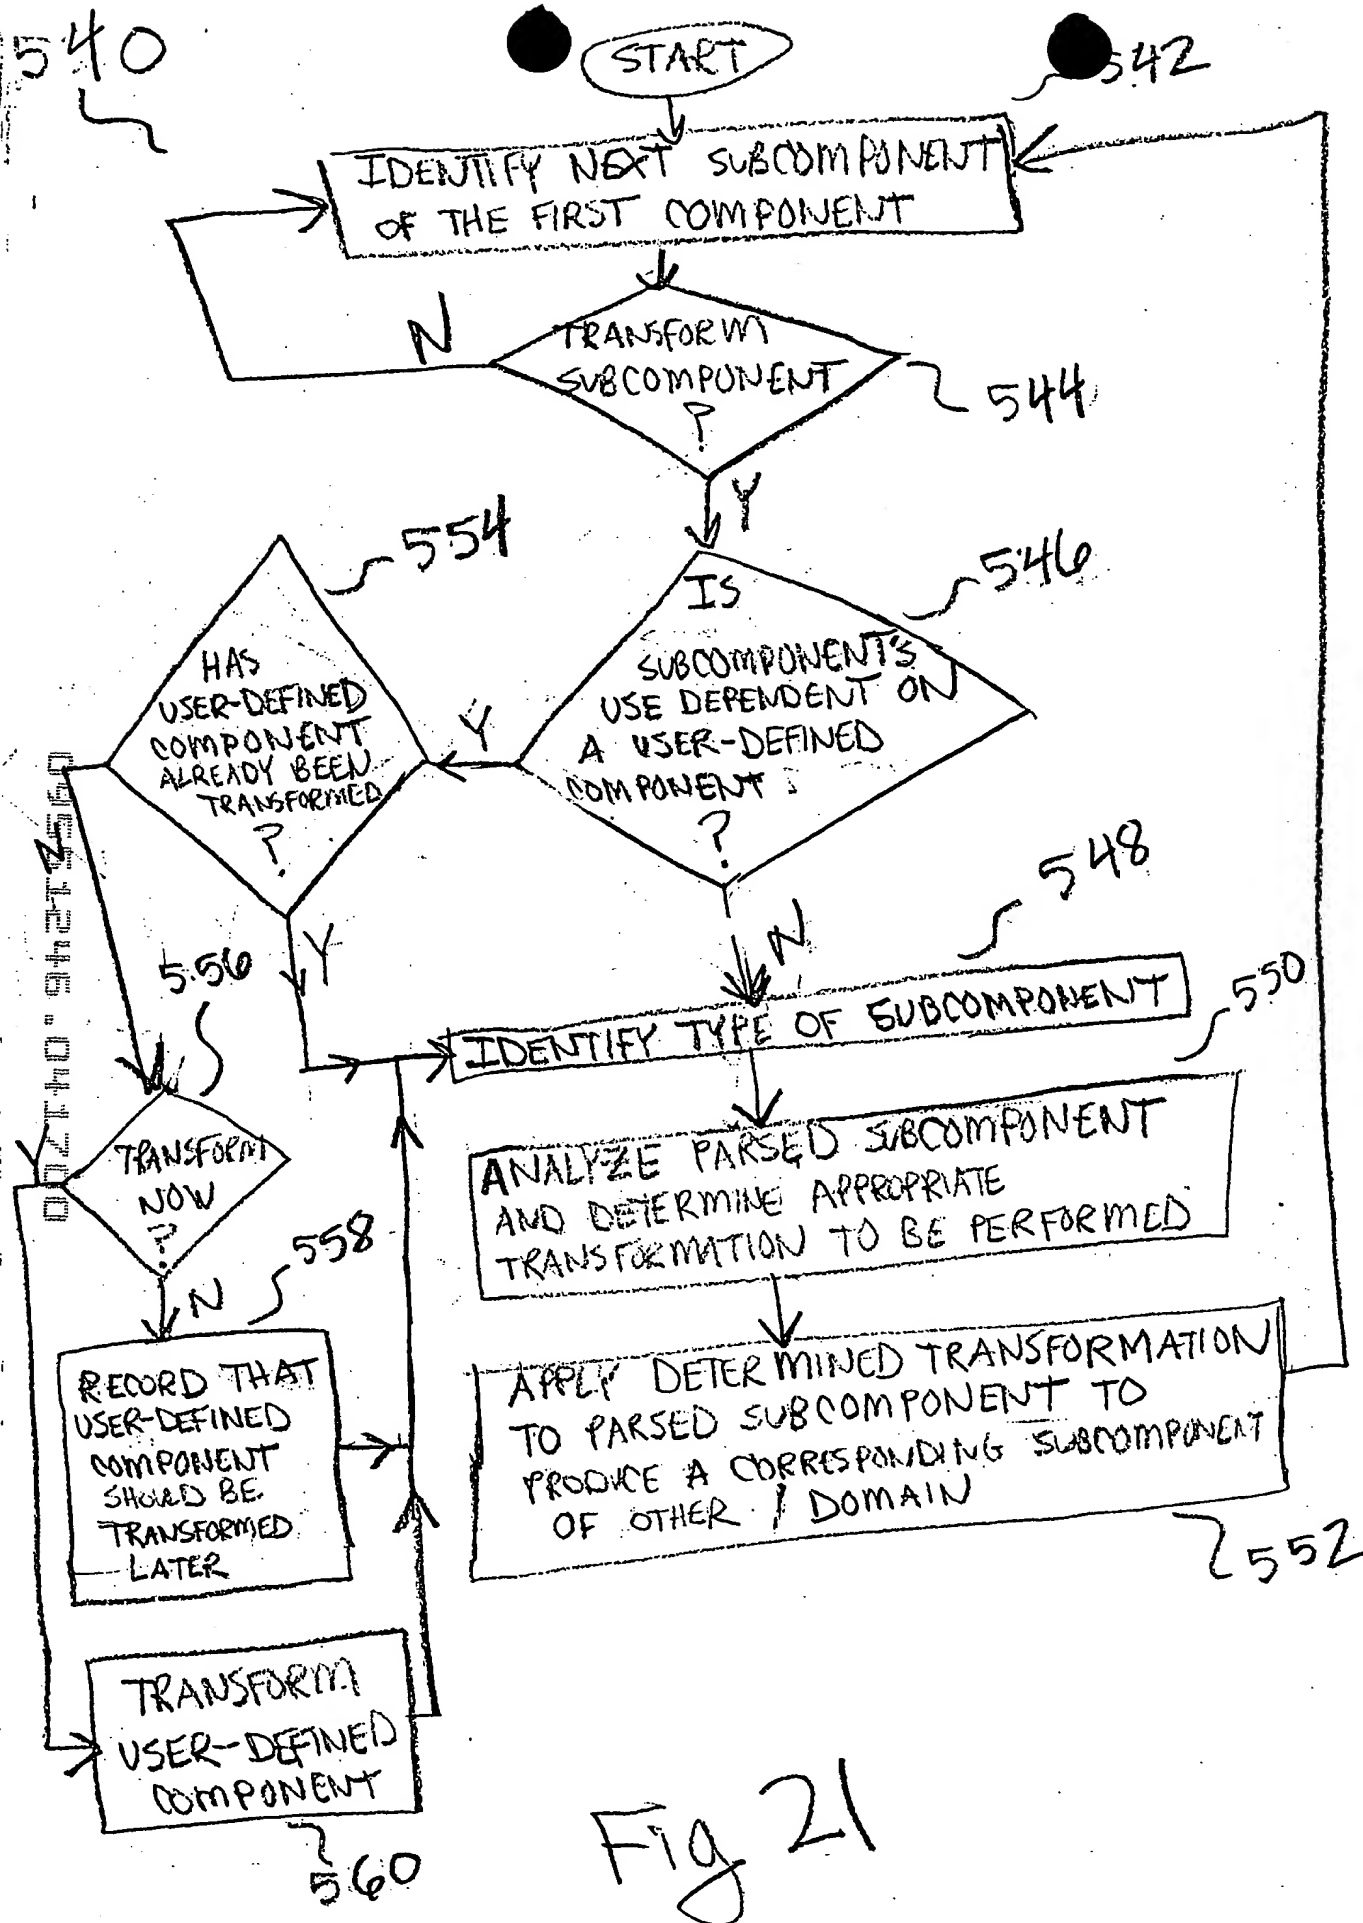 540
START
542
IDENTIFY NEXT SUBCOMPONENT
OF THE FIRST COMPONENT
N
TRANSFORM
SUBCOMPONENT
?
544
Y
554
546
IS
SUBCOMPONENT'S
USE DEPENDENT ON
A USER-DEFINED
COMPONENT
?
Y
HAS
USER-DEFINED
COMPONENT
ALREADY BEEN
TRANSFORMED
?
N
Y
N
548
556
550
IDENTIFY TYPE OF SUBCOMPONENT
TRANSFORM
NOW
?
Y
N
558
ANALYZE PARSED SUBCOMPONENT
AND DETERMINE APPROPRIATE
TRANSFORMATION TO BE PERFORMED
RECORD THAT
USER-DEFINED
COMPONENT
SHOULD BE
TRANSFORMED
LATER
APPLY DETERMINED TRANSFORMATION
TO PARSED SUBCOMPONENT TO
PRODUCE A CORRESPONDING SUBCOMPONENT
OF OTHER / DOMAIN
552
TRANSFORM
USER-DEFINED
COMPONENT
560
Fig 21